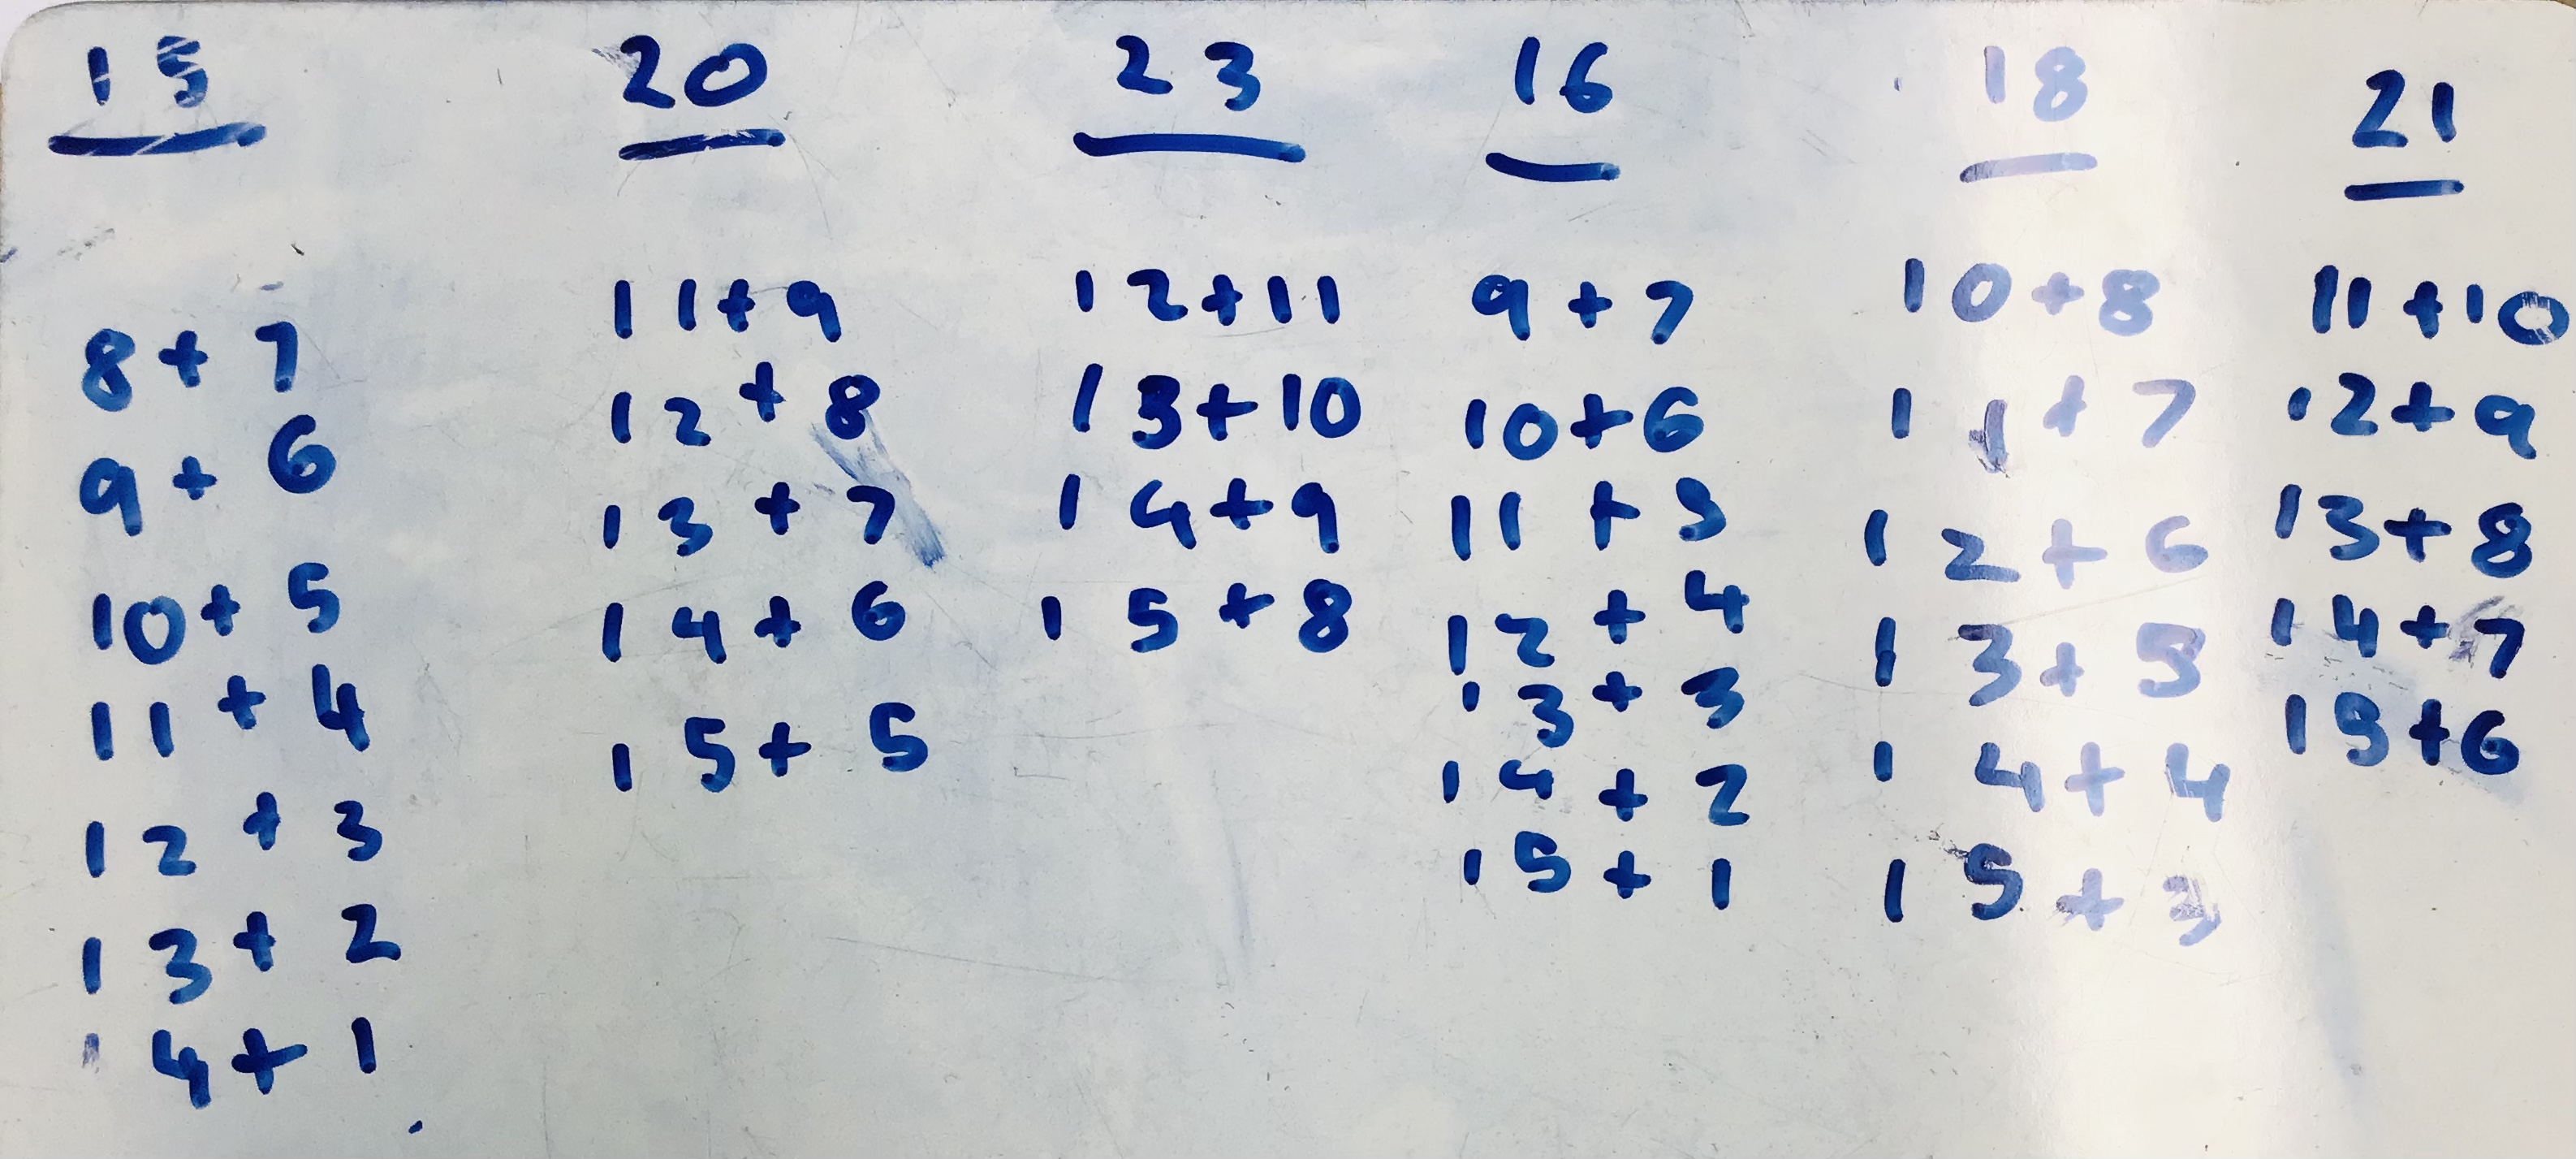 15
8+7
9+6
10+5
11+4
12+3
13+2
14+1
20
11+9
12+8
13+7
14+6
15+5
23
12+11
13+10
14+9
15+8
16
9+7
10+6
11+5
12+4
13+3
14+2
15+1
18
10+8
11+7
12+6
13+5
14+4
15+3
21
11+10
12+9
13+8
14+7
15+6